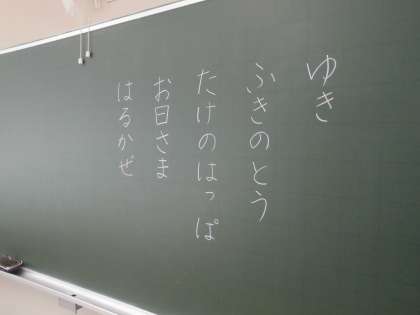 ゆき
ふきのとう
たけのはっぱ
お日さま
はるかぜ